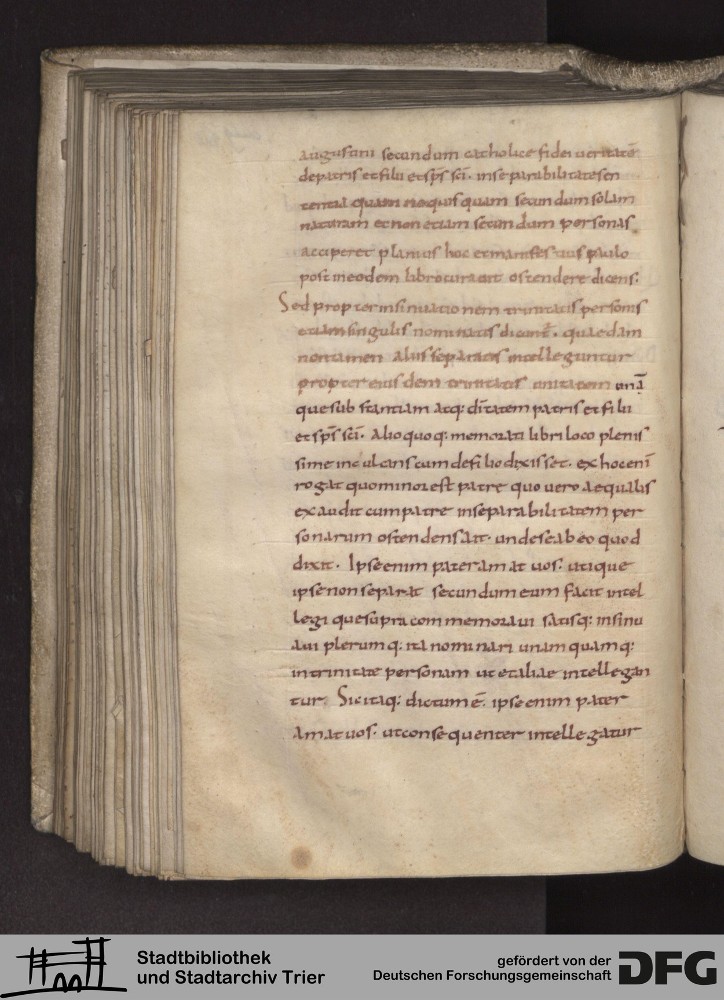 augustini secundum catholice fidei ueritatē
depatris et filii et sp̄s sc̄i. inseparabilitate sen
tentia quam ne quisquam secundum solam
naturam et non etiam secundum personas
acciperet planius hoc et manifestius paulo
post in eodem libro curauit ostendere dicens.
Sed propter insinuationem trinitatis personis
etiam singulis nominatis dicunt̄. quaedam
non tamen aliis separatis intelleguntur
propter eiusdem trinitatis unitatem unā
que substantiam atq: dītatem patris et filii
et sp̄s sc̄i. Alio quoq: memorati libri loco plenis
sime inculcans cum de filio dixisset. ex hoc enī
rogat quo minor est patre quo uero aequalis
exaudit cum patre inseparabilitatem per
sonarum ostendens ait. unde se ab eo quod
dixit. Ipse enim pater amat uos. utique
ipse non separat secundum eum facit intel
legi que supra commemoraui satisq: insinu
aui plerumq: ita nominari unam quamq:
in trinitate personam ut et aliae intellegan
tur. Sic itaq: dictum ē. ipse enim pater
amat uos. ut consequenter intellegatur
Stadtbibliothek
und Stadtarchiv Trier
gefördert von der
Deutschen Forschungsgemeinschaft
DFG